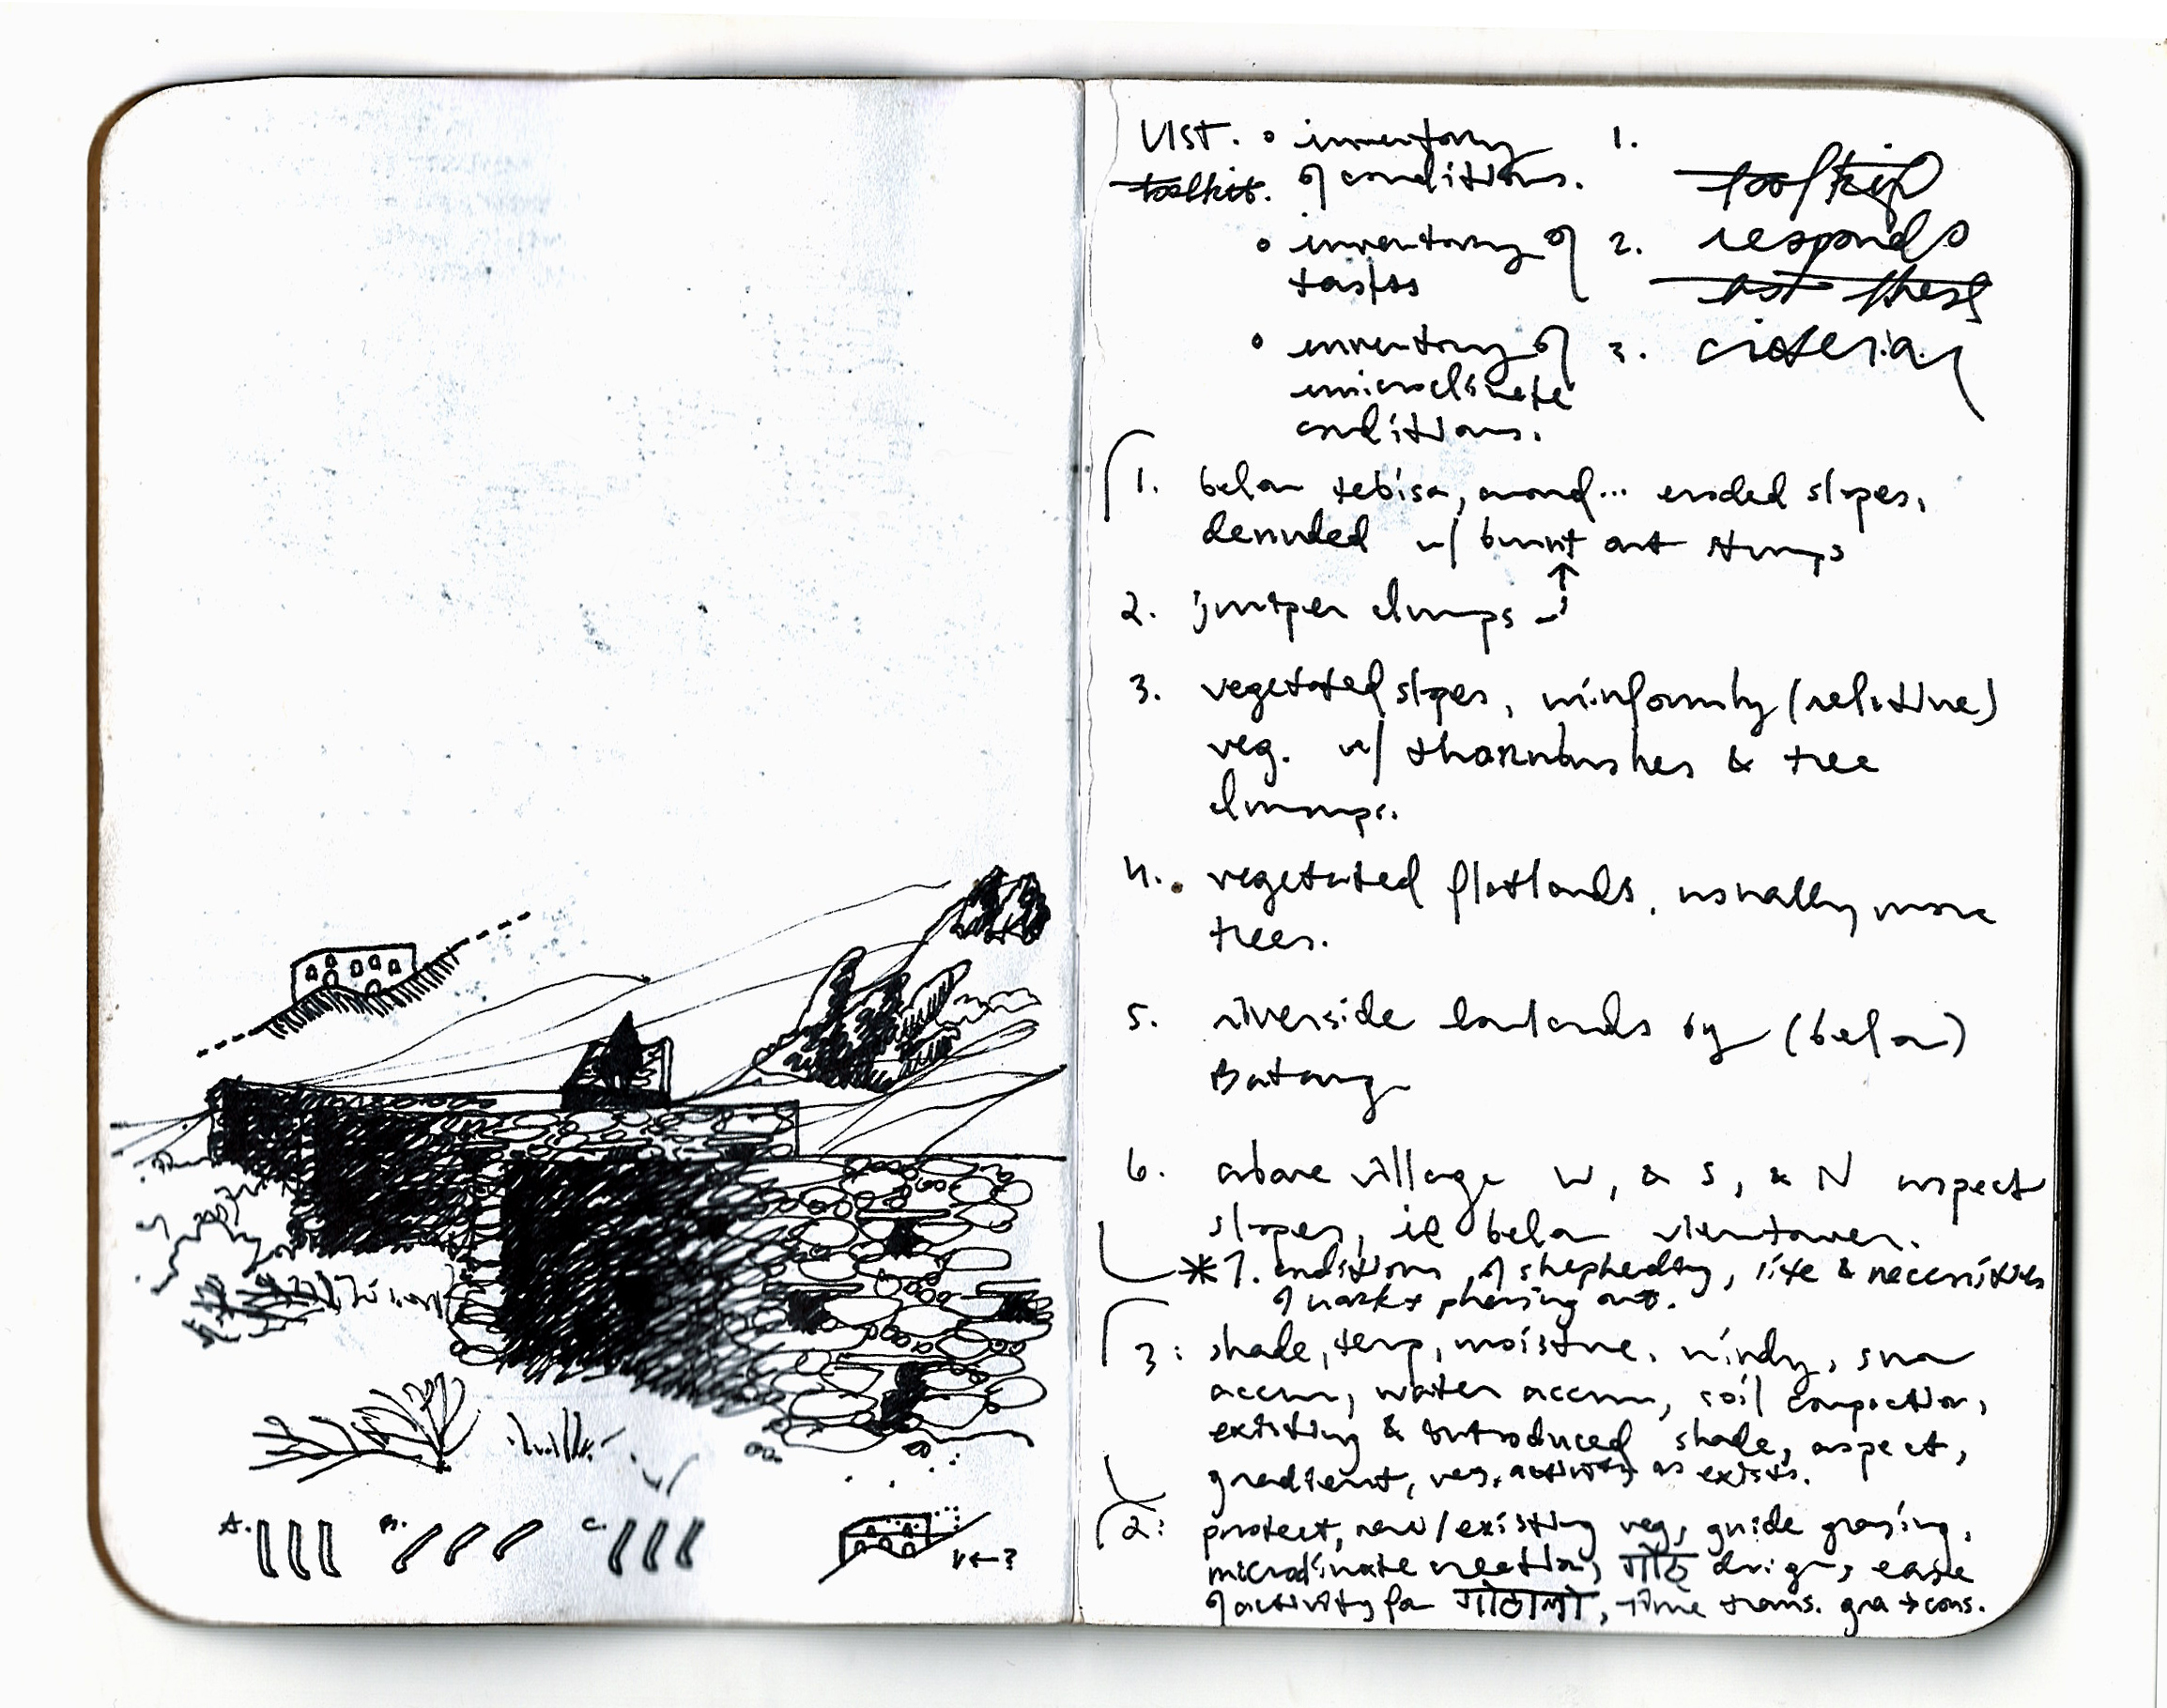 A. B. C.
v←?
LIST. • inventory of conditions. 1.
toolkit.
• inventory of tasks 2.
• inventory of microclimate conditions. 3.
toolkit
responds
to these
criteria
1. below tebisa, around... eroded slopes,
denuded w/ burnt out stumps
2. juniper clumps
3. vegetated slopes, uniformly (relative)
veg. w/ thornbushes & tree
clumps.
4. vegetated flatlands, usually more
trees.
5. riverside lowlands by (below)
Batang
6. above village W, & S, & N aspect
slopes, ie below viewtower.
*7. conditions of shepherding, life & necessities
of work + phasing out.
3: shade, temp, moisture, windy, snow
accum, water accum, soil compaction,
existing & introduced shade, aspect,
gradient, veg, activity as exists.
2: protect, new/existing veg, guide grazing,
microclimate creation, गोठ design, ease
of activity for गोठालो, time trans. gra → cons.